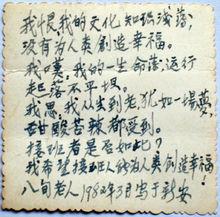 我恨我的文化知识浅薄，
没有为人类创造幸福。
我嘆，我的一生命落运行
起落不平垠。
我思，我从生到老犹如一場夢，
甜酸苦辣都受到。
接班者是否如此？
我希望接班人能为人类创造幸福。
八旬老人1982年3月写于新安